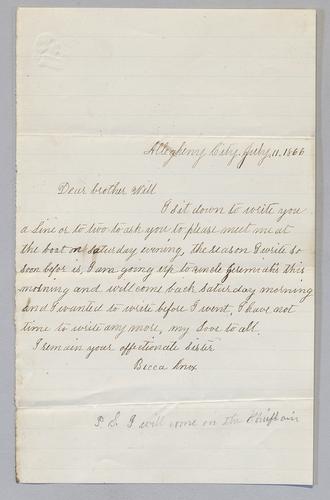 Allegheny City July, 11. 1866
Dear brother Will
I sit down to write you
a line or to two to ask you to please meet me at
the boat on saturday evening, the reason I write so
soon befor is, I am going up to uncle Jeremiahs this
morning and will come back saturday morning
and I wanted to write before I went. I have not
time to write any more, my love to all.
I remain your affectionate sister
Becca Knox
P S I will come on the Chieftain